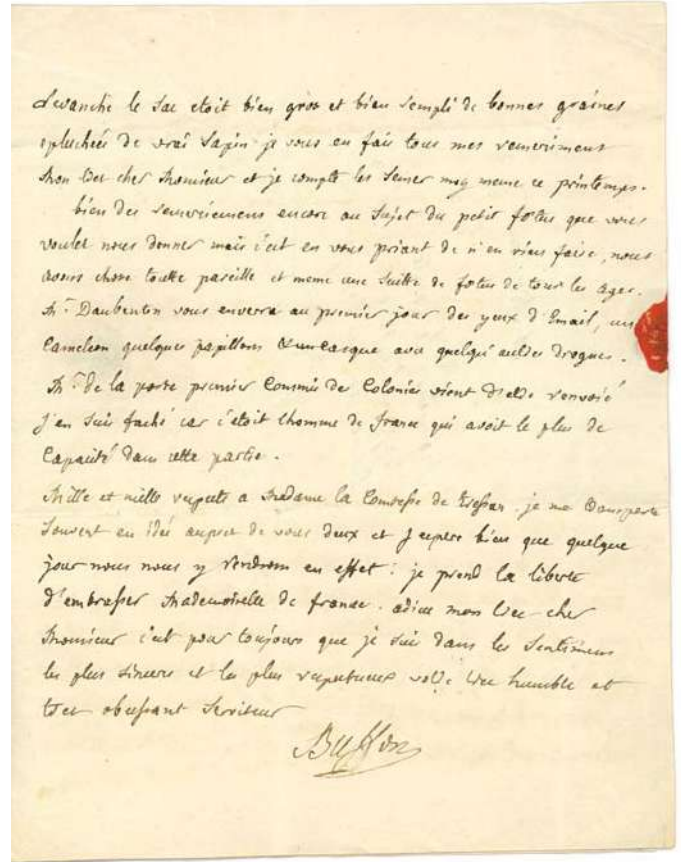 Revanche le sac etoit bien gros et bien rempli de bonnes graines
epluchées de vrai Sapin je vous en fais tous mes remerciments
Mon tres cher Monsieur et je compte les semer moy meme ce printemps.
bien des remerciemens encore au sujet du petit fœtus que vous
voulez nous donner mais c'est en vous priant de n'en rien faire, nous
avons chose toutte pareille et meme une suitte de fœtus de tous les ages.
Mr. Daubenton vous enverra au premier jour des yeux d'Email, un
Cameleon quelques papillons & un casque avec quelqu'autres drogues.
Mr. de la porte premier Commis des Colonies vient d'estre renvoié
J'en suis faché car c'étoit l'homme de france qui avoit le plus de
Capacité dans cette partie.
Mille et mille respects a Madame la Comtesse de Tressan. je me transporte
souvent en idée aupres de vous deux et J'espere bien que quelque
jour nous nous y rendrons en effet : je prend la liberté
d'embrasser Mademoiselle de france. adieu mon tres cher
Monsieur c'est pour toujours que je suis dans les sentimens
les plus sinceres et les plus respectueux votre tres humble et
tres obeissant serviteur
Buffon